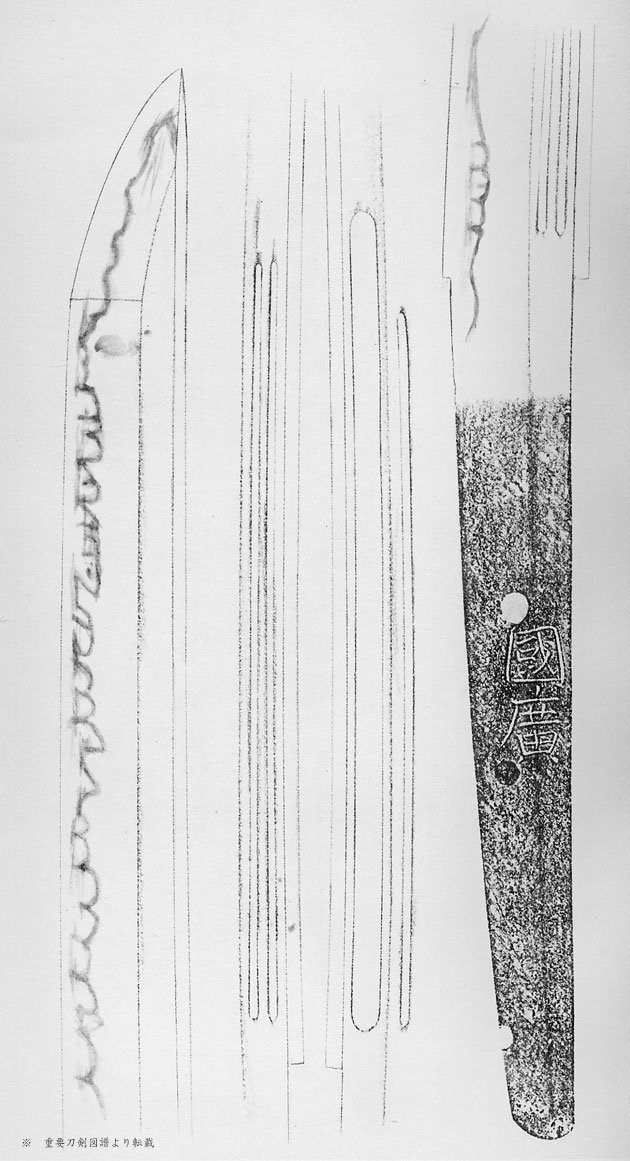 國廣
※ 重要刀剣図譜より転載